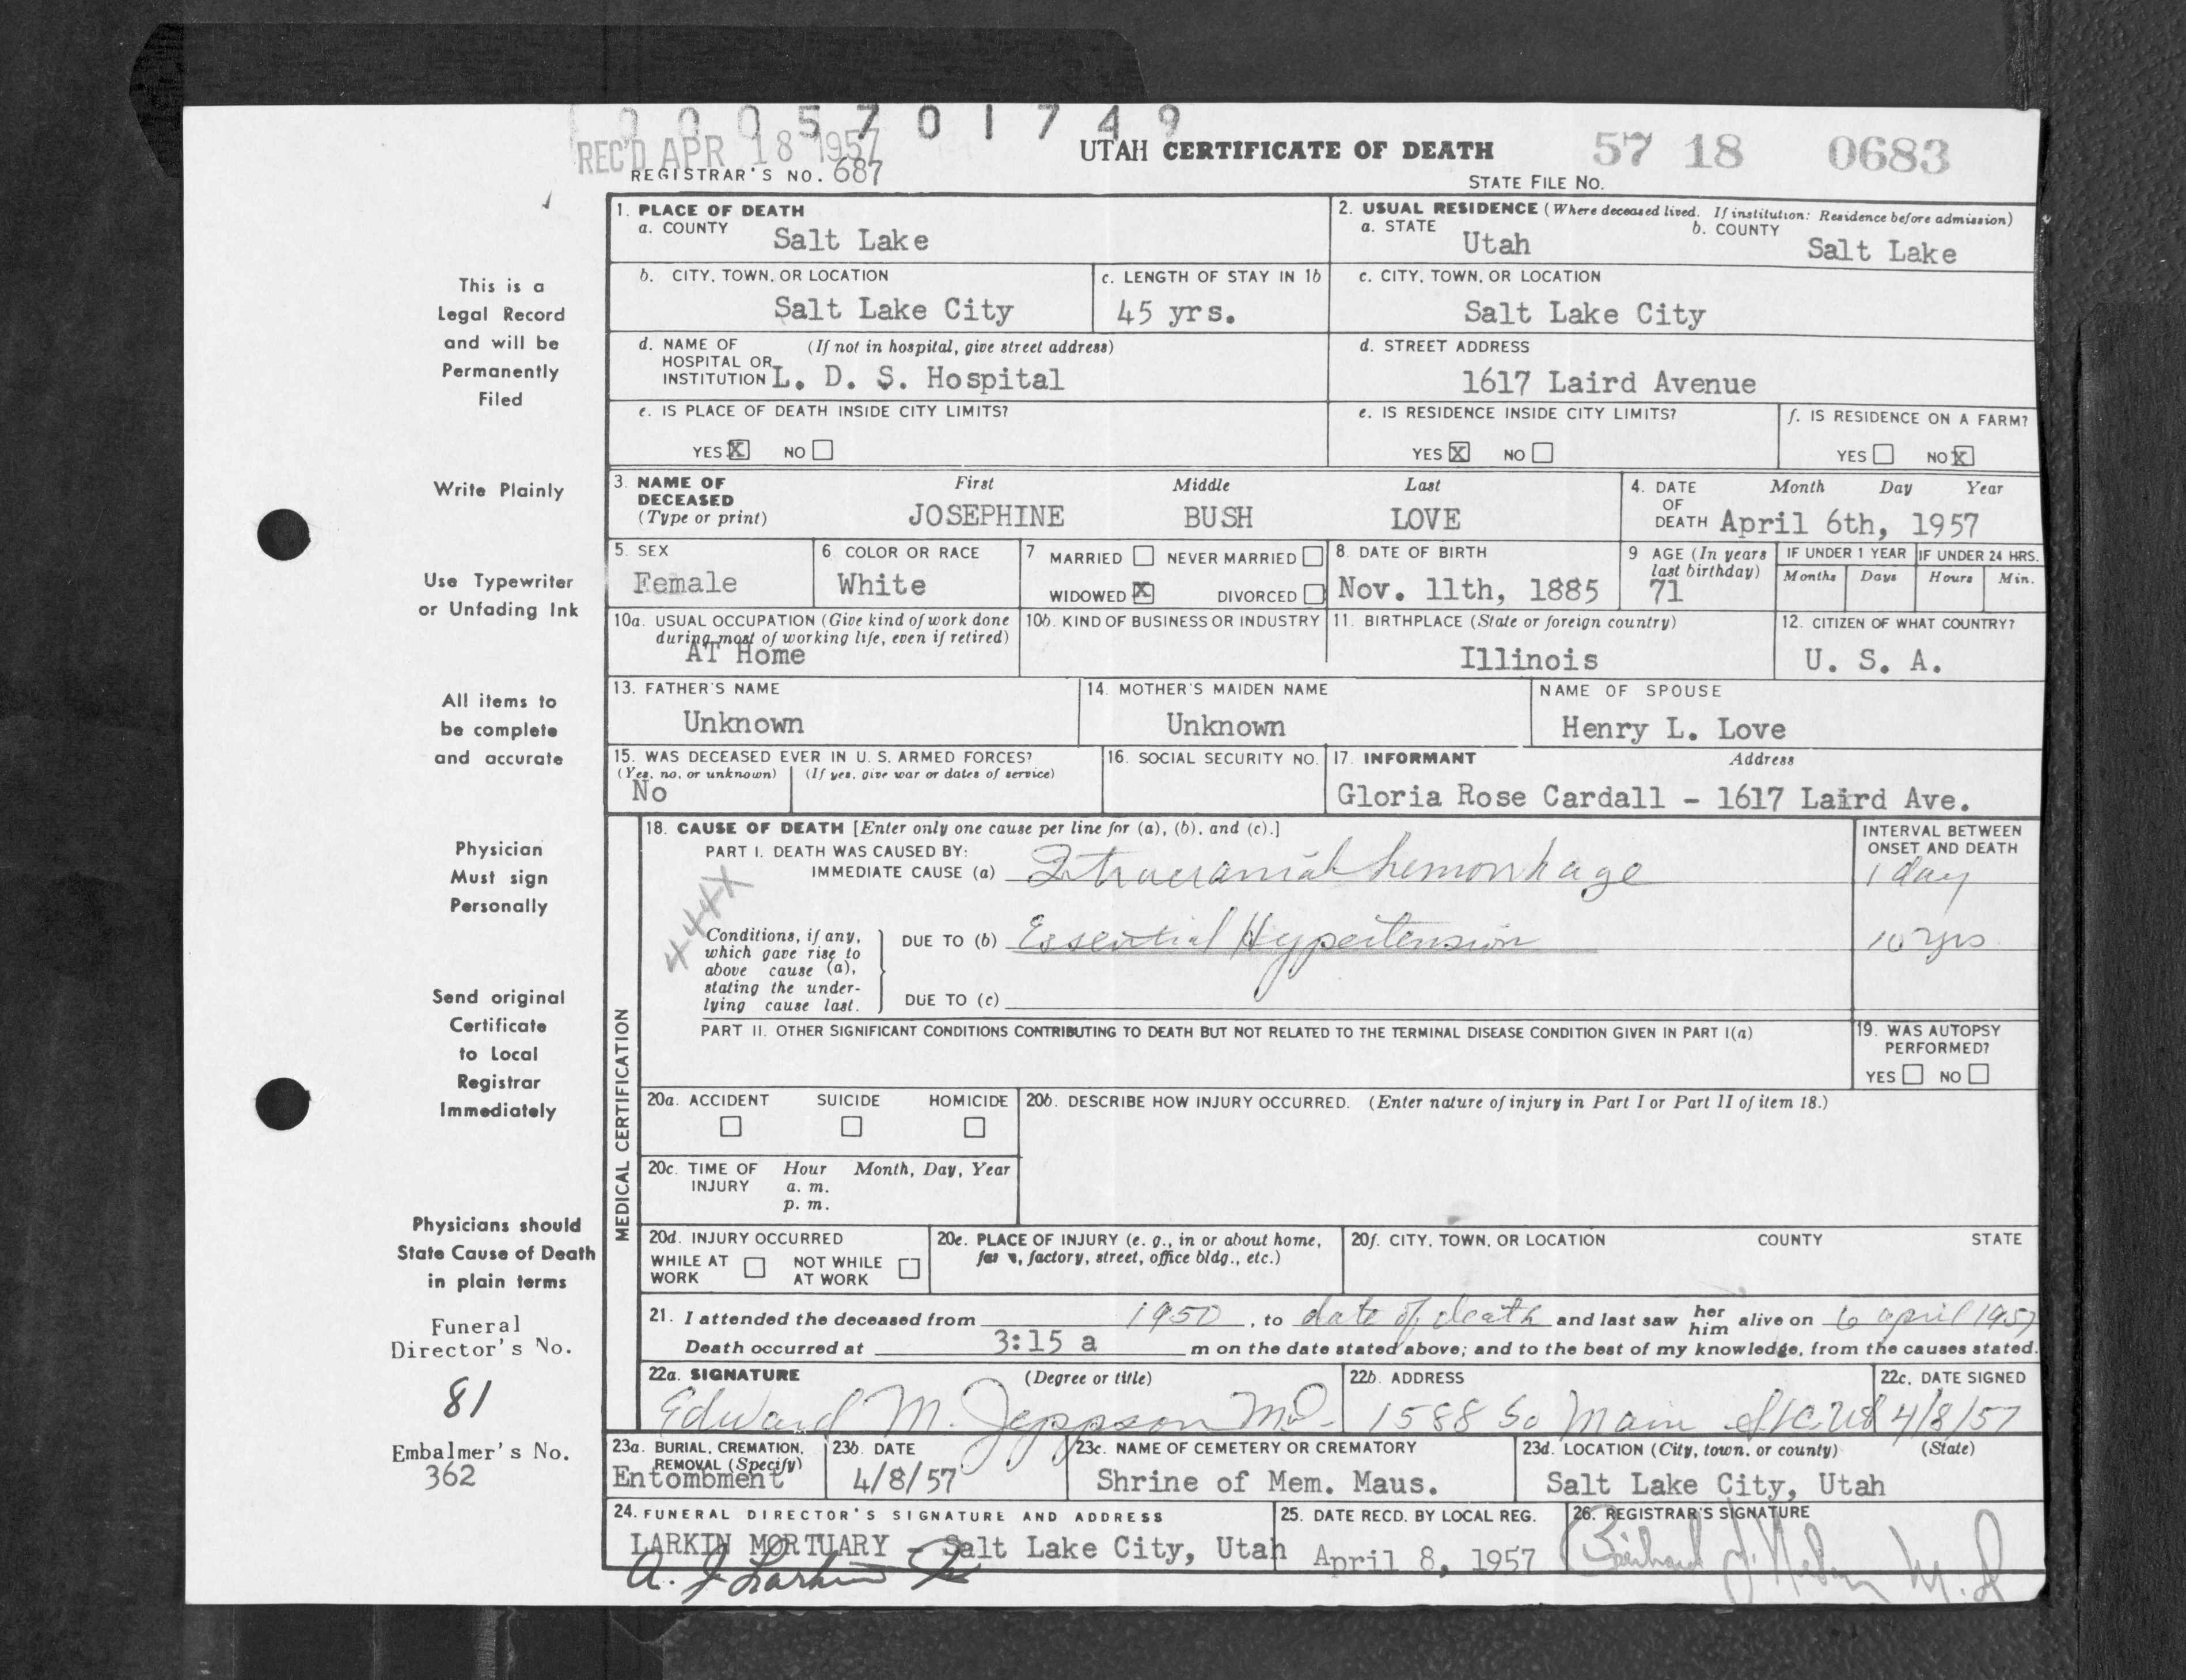 0 0 0 5 7 0 1 7 4 9
REC'D APR 18 1957
REGISTRAR'S NO. 687
UTAH CERTIFICATE OF DEATH
57 18 0683
STATE FILE NO.
This is a
Legal Record
and will be
Permanently
Filed
Write Plainly
Use Typewriter
or Unfading Ink
All items to
be complete
and accurate
Physician
Must sign
Personally
Send original
Certificate
to Local
Registrar
Immediately
Physicians should
State Cause of Death
in plain terms
Funeral
Director's No.
81
Embalmer's No.
362
1. PLACE OF DEATH
a. COUNTY Salt Lake
2. USUAL RESIDENCE (Where deceased lived. If institution: Residence before admission)
a. STATE Utah b. COUNTY Salt Lake
b. CITY, TOWN, OR LOCATION
Salt Lake City
c. LENGTH OF STAY IN 1b
45 yrs.
c. CITY, TOWN, OR LOCATION
Salt Lake City
d. NAME OF (If not in hospital, give street address)
HOSPITAL OR
INSTITUTION L. D. S. Hospital
d. STREET ADDRESS
1617 Laird Avenue
e. IS PLACE OF DEATH INSIDE CITY LIMITS?
YES X NO
e. IS RESIDENCE INSIDE CITY LIMITS?
YES X NO
f. IS RESIDENCE ON A FARM?
YES NO X
3. NAME OF DECEASED (Type or print)
First Middle Last
JOSEPHINE BUSH LOVE
4. DATE OF DEATH Month Day Year
April 6th, 1957
5. SEX
Female
6. COLOR OR RACE
White
7 MARRIED NEVER MARRIED
WIDOWED X DIVORCED
8. DATE OF BIRTH
Nov. 11th, 1885
9 AGE (In years last birthday)
71
IF UNDER 1 YEAR
Months Days
IF UNDER 24 HRS.
Hours Min.
10a. USUAL OCCUPATION (Give kind of work done
during most of working life, even if retired)
AT Home
10b. KIND OF BUSINESS OR INDUSTRY
11. BIRTHPLACE (State or foreign country)
Illinois
12. CITIZEN OF WHAT COUNTRY?
U. S. A.
13. FATHER'S NAME
Unknown
14. MOTHER'S MAIDEN NAME
Unknown
NAME OF SPOUSE
Henry L. Love
15. WAS DECEASED EVER IN U. S. ARMED FORCES?
(Yes, no, or unknown) (If yes, give war or dates of service)
No
16. SOCIAL SECURITY NO.
17. INFORMANT Address
Gloria Rose Cardall - 1617 Laird Ave.
MEDICAL CERTIFICATION
18. CAUSE OF DEATH [Enter only one cause per line for (a), (b), and (c).]
INTERVAL BETWEEN
ONSET AND DEATH
PART I. DEATH WAS CAUSED BY:
IMMEDIATE CAUSE (a) Intracranial hemorrhage 1 day
444X
Conditions, if any,
which gave rise to
above cause (a),
stating the under-
lying cause last.
DUE TO (b) Essential Hypertension 10 yrs
DUE TO (c)
PART II. OTHER SIGNIFICANT CONDITIONS CONTRIBUTING TO DEATH BUT NOT RELATED TO THE TERMINAL DISEASE CONDITION GIVEN IN PART I(a)
19. WAS AUTOPSY
PERFORMED?
YES NO
20a. ACCIDENT SUICIDE HOMICIDE
20b. DESCRIBE HOW INJURY OCCURRED. (Enter nature of injury in Part I or Part II of item 18.)
20c. TIME OF INJURY Hour Month, Day, Year
a. m.
p. m.
20d. INJURY OCCURRED
WHILE AT WORK NOT WHILE AT WORK
20e. PLACE OF INJURY (e. g., in or about home,
factory, street, office bldg., etc.)
20f. CITY, TOWN, OR LOCATION COUNTY STATE
21. I attended the deceased from 1950, to date of death and last saw her him alive on 6 april 1957
Death occurred at 3:15 a m on the date stated above; and to the best of my knowledge, from the causes stated.
22a. SIGNATURE (Degree or title)
Edward M. Jeppson MD.
22b. ADDRESS
1588 So Main SLC Ut
22c. DATE SIGNED
4/8/57
23a. BURIAL, CREMATION,
REMOVAL (Specify)
Entombment
23b. DATE
4/8/57
23c. NAME OF CEMETERY OR CREMATORY
Shrine of Mem. Maus.
23d. LOCATION (City, town, or county) (State)
Salt Lake City, Utah
24. FUNERAL DIRECTOR'S SIGNATURE AND ADDRESS
LARKIN MORTUARY - Salt Lake City, Utah
A. J Larkin Jr
25. DATE RECD. BY LOCAL REG.
April 8, 1957
26. REGISTRAR'S SIGNATURE
M.D